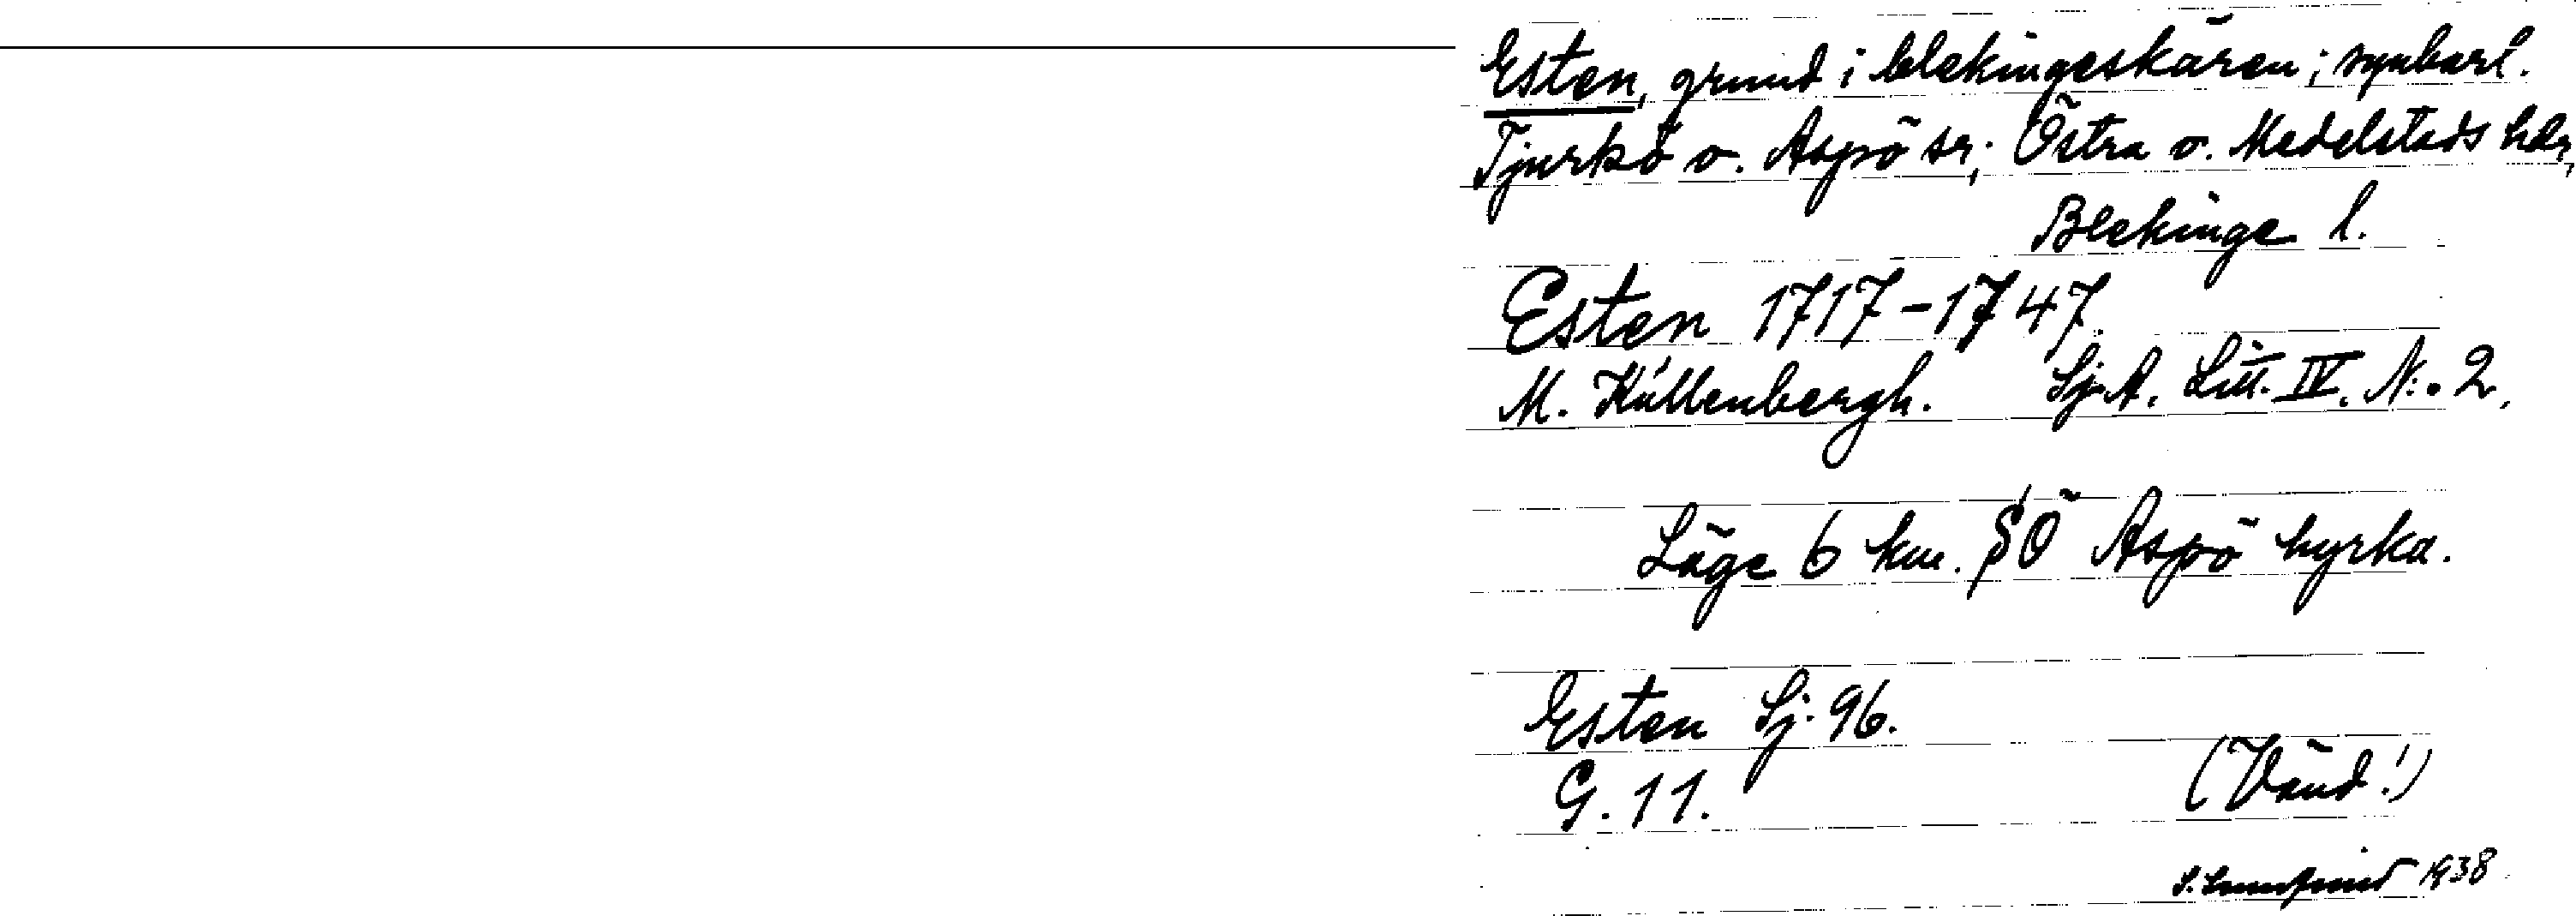 Esten, grund i blekingeskären; synbarl.
Tjurkö o. Aspö sr; Östra o. Medelstads hdr,
Blekinge l.
Esten 1717-1747.
M. Küllenbergh. Sj.A. Litt. IV. N:o 2.
Läge 6 km. SÖ Aspö kyrka.
Esten Sj. 96.
G. 11.
(Vänd!)
1938